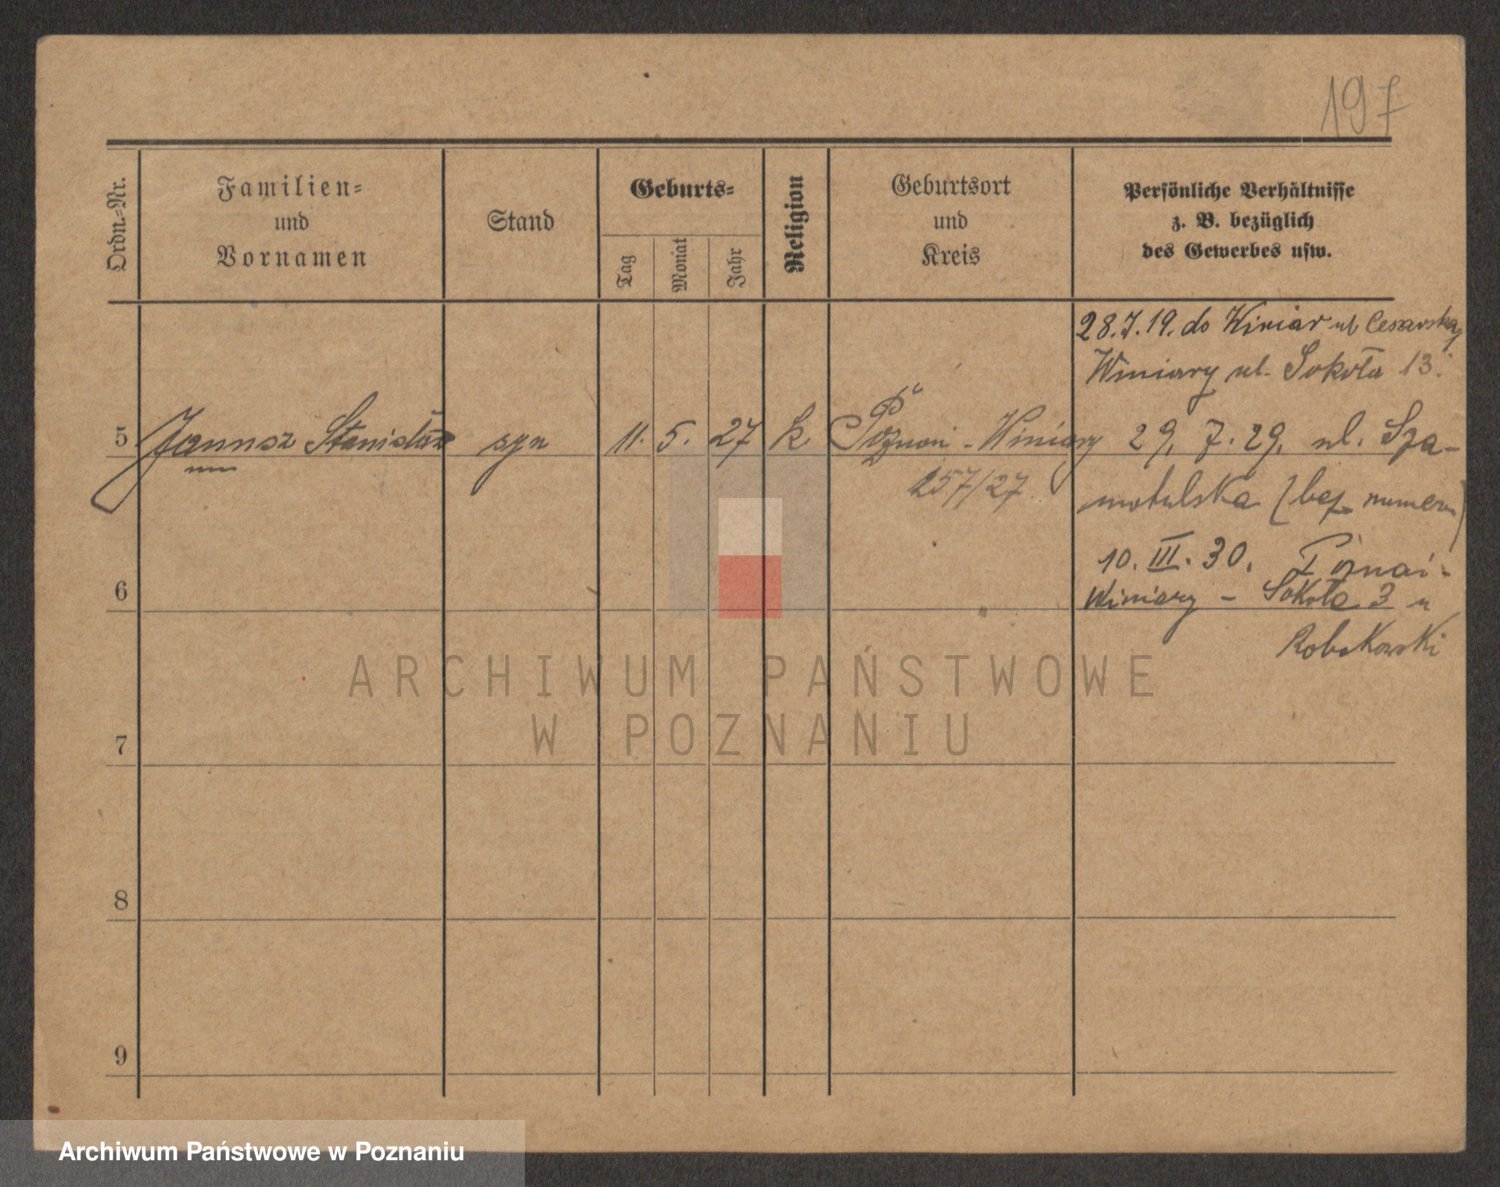 197
Ordn.-Nr.
Familien-
und
Vornamen
Stand
Geburts-
Tag
Monat
Jahr
Religion
Geburtsort
und
Kreis
Persönliche Verhältnisse
z. B. bezüglich
des Gewerbes usw.
28.7.19. do Winiar ul Cesarska
Winiary ul. Sokoła 13.
5 Janusz Stanisław syn 11. 5. 27 k Poznań - Winiary 29. 7. 29. ul. Sza-
257/27
motulska (bez numeru)
10. III. 30. Poznań -
6
Winiary - Sokoła 3 u
Robakowski
7
8
9
ARCHIWUM PAŃSTWOWE
W POZNANIU
Archiwum Państwowe w Poznaniu